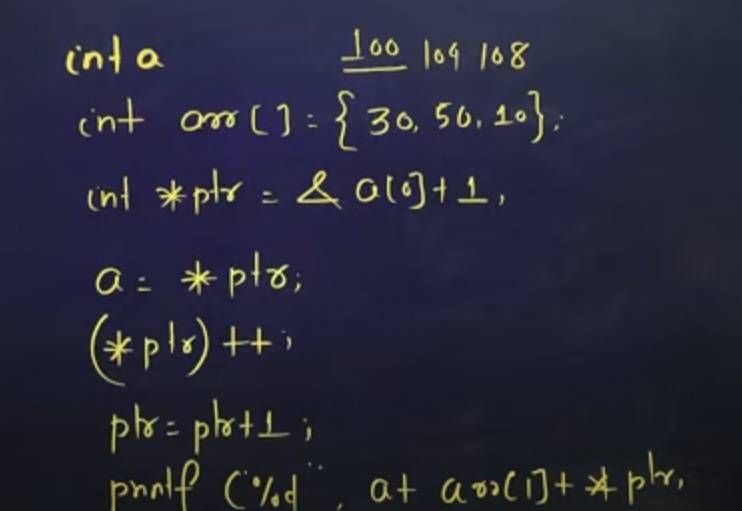 int a 100 104 108
int arr[] = {30, 50, 10};
int *ptr = & a[0]+1,
a = *ptr;
(*ptr)++;
ptr = ptr+1;
printf ("%d", a+ arr[1]+ *ptr,